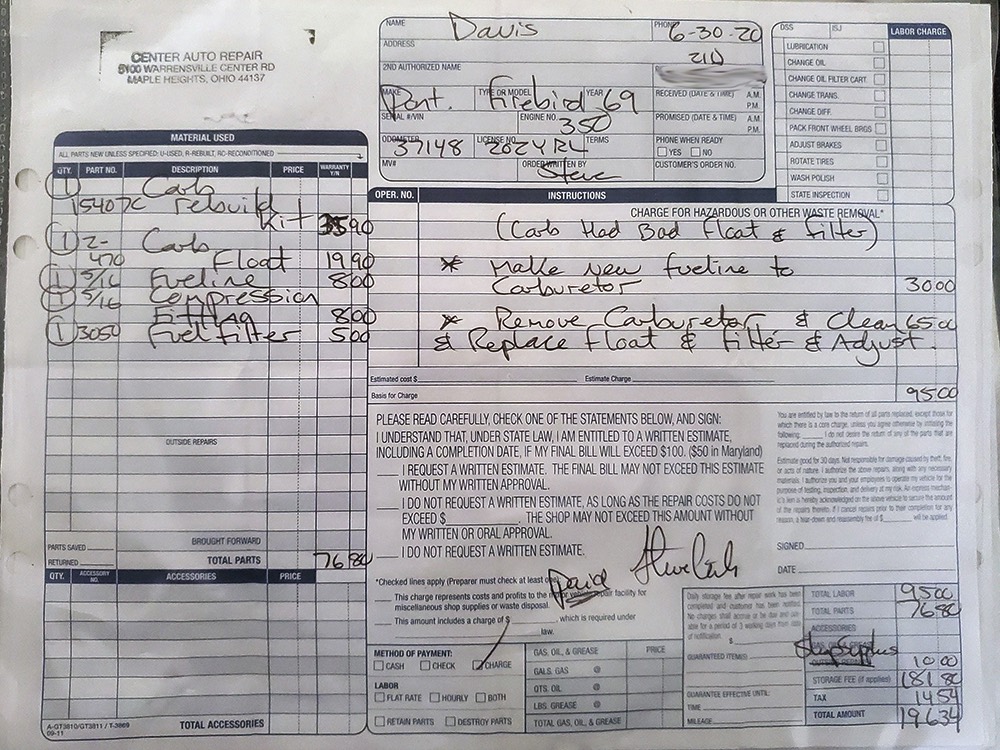 CENTER AUTO REPAIR
5100 WARRENSVILLE CENTER RD
MAPLE HEIGHTS, OHIO 44137
NAME Davis PHONE 6-30-20
ADDRESS 216
2ND AUTHORIZED NAME
MAKE Pont. TYPE OR MODEL Firebird YEAR 69 RECEIVED (DATE & TIME) A.M. P.M.
SERIAL #/VIN ENGINE NO. 350 PROMISED (DATE & TIME) A.M. P.M.
ODOMETER 37148 LICENSE NO. TERMS PHONE WHEN READY
YES NO
MV# ORDER WRITTEN BY Steve CUSTOMER'S ORDER NO.
DSS ISJ LABOR CHARGE
LUBRICATION
CHANGE OIL
CHANGE OIL FILTER CART
CHANGE TRANS.
CHANGE DIFF.
PACK FRONT WHEEL BRGS
ADJUST BRAKES
ROTATE TIRES
WASH POLISH
STATE INSPECTION
MATERIAL USED
ALL PARTS NEW UNLESS SPECIFIED: U-USED, R-REBUILT, RC-RECONDITIONED
QTY. PART NO. DESCRIPTION PRICE WARRANTY Y/N
1 Carb
15407C rebuild
Kit 3590
1 2- Carb
470 Float 1990
1 5/16 Fueline 800
1 5/16 Compression
Fitting 800
1 3050 Fuel filter 500
OUTSIDE REPAIRS
BROUGHT FORWARD
PARTS SAVED
RETURNED TOTAL PARTS 7680
QTY. ACCESSORY NO. ACCESSORIES PRICE
A-GT3810/GT3811 / T-3869
09-11
TOTAL ACCESSORIES
OPER. NO. INSTRUCTIONS
CHARGE FOR HAZARDOUS OR OTHER WASTE REMOVAL*
(Carb Had Bad Float & filter)
* Make New fueline to
Carburetor 3000
* Remove Carburetor & Clean 6500
& Replace Float & Filter & Adjust.
Estimated cost $ Estimate Charge
Basis for Charge 9500
PLEASE READ CAREFULLY, CHECK ONE OF THE STATEMENTS BELOW, AND SIGN:
I UNDERSTAND THAT, UNDER STATE LAW, I AM ENTITLED TO A WRITTEN ESTIMATE,
INCLUDING A COMPLETION DATE, IF MY FINAL BILL WILL EXCEED $100. ($50 in Maryland)
I REQUEST A WRITTEN ESTIMATE. THE FINAL BILL MAY NOT EXCEED THIS ESTIMATE
WITHOUT MY WRITTEN APPROVAL.
I DO NOT REQUEST A WRITTEN ESTIMATE, AS LONG AS THE REPAIR COSTS DO NOT
EXCEED $ . THE SHOP MAY NOT EXCEED THIS AMOUNT WITHOUT
MY WRITTEN OR ORAL APPROVAL.
I DO NOT REQUEST A WRITTEN ESTIMATE.
*Checked lines apply (Preparer must check at least one)
Paid
This charge represents costs and profits to the motor vehicle repair facility for
miscellaneous shop supplies or waste disposal.
This amount includes a charge of $ , which is required under
law.
You are entitled by law to the return of all parts replaced, except those for
which there is a core charge, unless you agree otherwise by initialing the
following. I do not desire the return of any of the parts that are
replaced during the authorized repairs.
Estimate good for 30 days. Not responsible for damage caused by theft, fire,
or acts of nature. I authorize the above repairs, along with any necessary
materials. I authorize you and your employees to operate my vehicle for the
purpose of testing, inspection, and delivery at my risk. An express mechan-
ic's lien is hereby acknowledged on the above vehicle to secure the amount
of the repairs thereto. If I cancel repairs prior to their completion for any
reason, a tear-down and reassembly fee of $ will be applied.
SIGNED
DATE
METHOD OF PAYMENT:
CASH CHECK CHARGE
LABOR
FLAT RATE HOURLY BOTH
RETAIN PARTS DESTROY PARTS
GAS, OIL, & GREASE PRICE
GALS. GAS @
QTS. OIL @
LBS. GREASE @
TOTAL GAS, OIL, & GREASE
Daily storage fee after repair work has been
completed and customer has been notified.
No charges shall accrue or be due and pay-
able for a period of 3 working days from date
of notification. $
GUARANTEED ITEM(S):
GUARANTEE EFFECTIVE UNTIL:
TIME
MILEAGE
TOTAL LABOR 9500
TOTAL PARTS 7680
ACCESSORIES
1000
STORAGE FEE (if applies) 18180
TAX 1454
TOTAL AMOUNT 19634